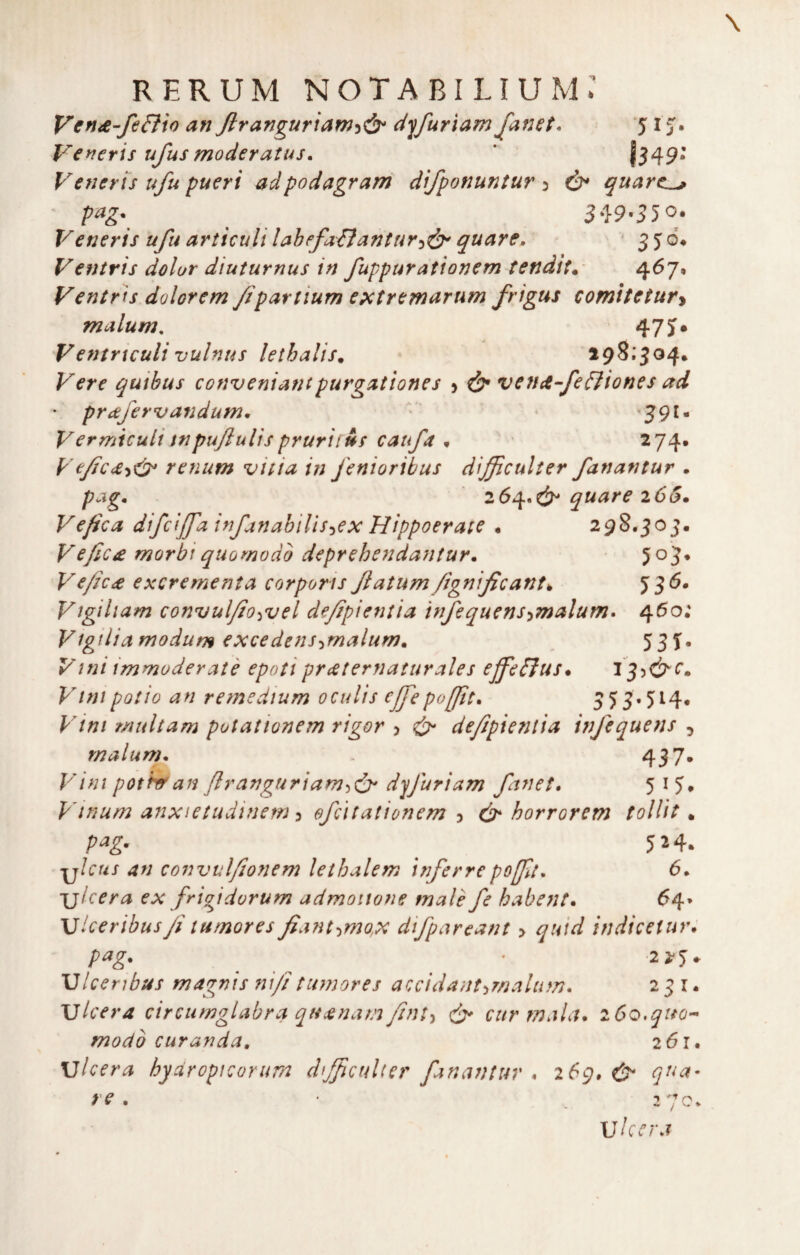 RERUM NOTABILIUM.
Venæ-ſectio an ſtranguriam, & dyſuriam ſanet. 515.
Veneris uſus moderatus. 349.
Veneris uſu pueri ad podagram diſponuntur, & quare
pag. 349.350.
Veneris uſu articuli labefactantur, & quare. 350.
Ventris dolor diuturnus in ſuppurationem tendit. 467.
Ventris dolorem ſi partium extremarum frigus comitetur,
malum. 475.
Ventriculi vulnus lethalis. 298.304.
Vere quibus conveniant purgationes, & venæ-ſectiones ad
præſervandum. 391.
Vermiculi in puſtulis pruritûs cauſa. 274.
Veſicæ, & renum vitia in ſenioribus difficulter ſanantur.
pag. 264. & quare 266.
Veſica diſciſſa inſanabilis, ex Hippocrate. 298.303.
Veſicæ morbi quomodò deprehendantur. 503.
Veſicæ excrementa corporis ſtatum ſignificant. 536.
Vigiliam convulſio, vel deſipientia inſequens, malum. 460.
Vigilia modum excedens, malum. 535.
Vini immoderatè epoti præternaturales effectus. 13, &c.
Vini potio an remedium oculis eſſe poſſit. 353.514.
Vini multam potationem rigor, & deſipientia inſequens,
malum. 437.
Vini potio an ſtranguriam, & dyſuriam ſanet. 515.
Vinum anxietudinem, oſcitationem, & horrorem tollit.
pag. 524.
Ulcus an convulſionem lethalem inferre poſſit. 6.
Ulcera ex frigidorum admotione malè ſe habent. 64.
Ulceribus ſi tumores fiant, mox diſpareant, quid indicetur.
pag. 225.
Ulceribus magnis niſi tumores accidant, malum. 231.
Ulcera circumglabra quænam ſint, & cur mala. 260. quo-
modò curanda. 261.
Ulcera hydropicorum difficulter ſanantur. 269. & qua-
re. 270.
Ulcera